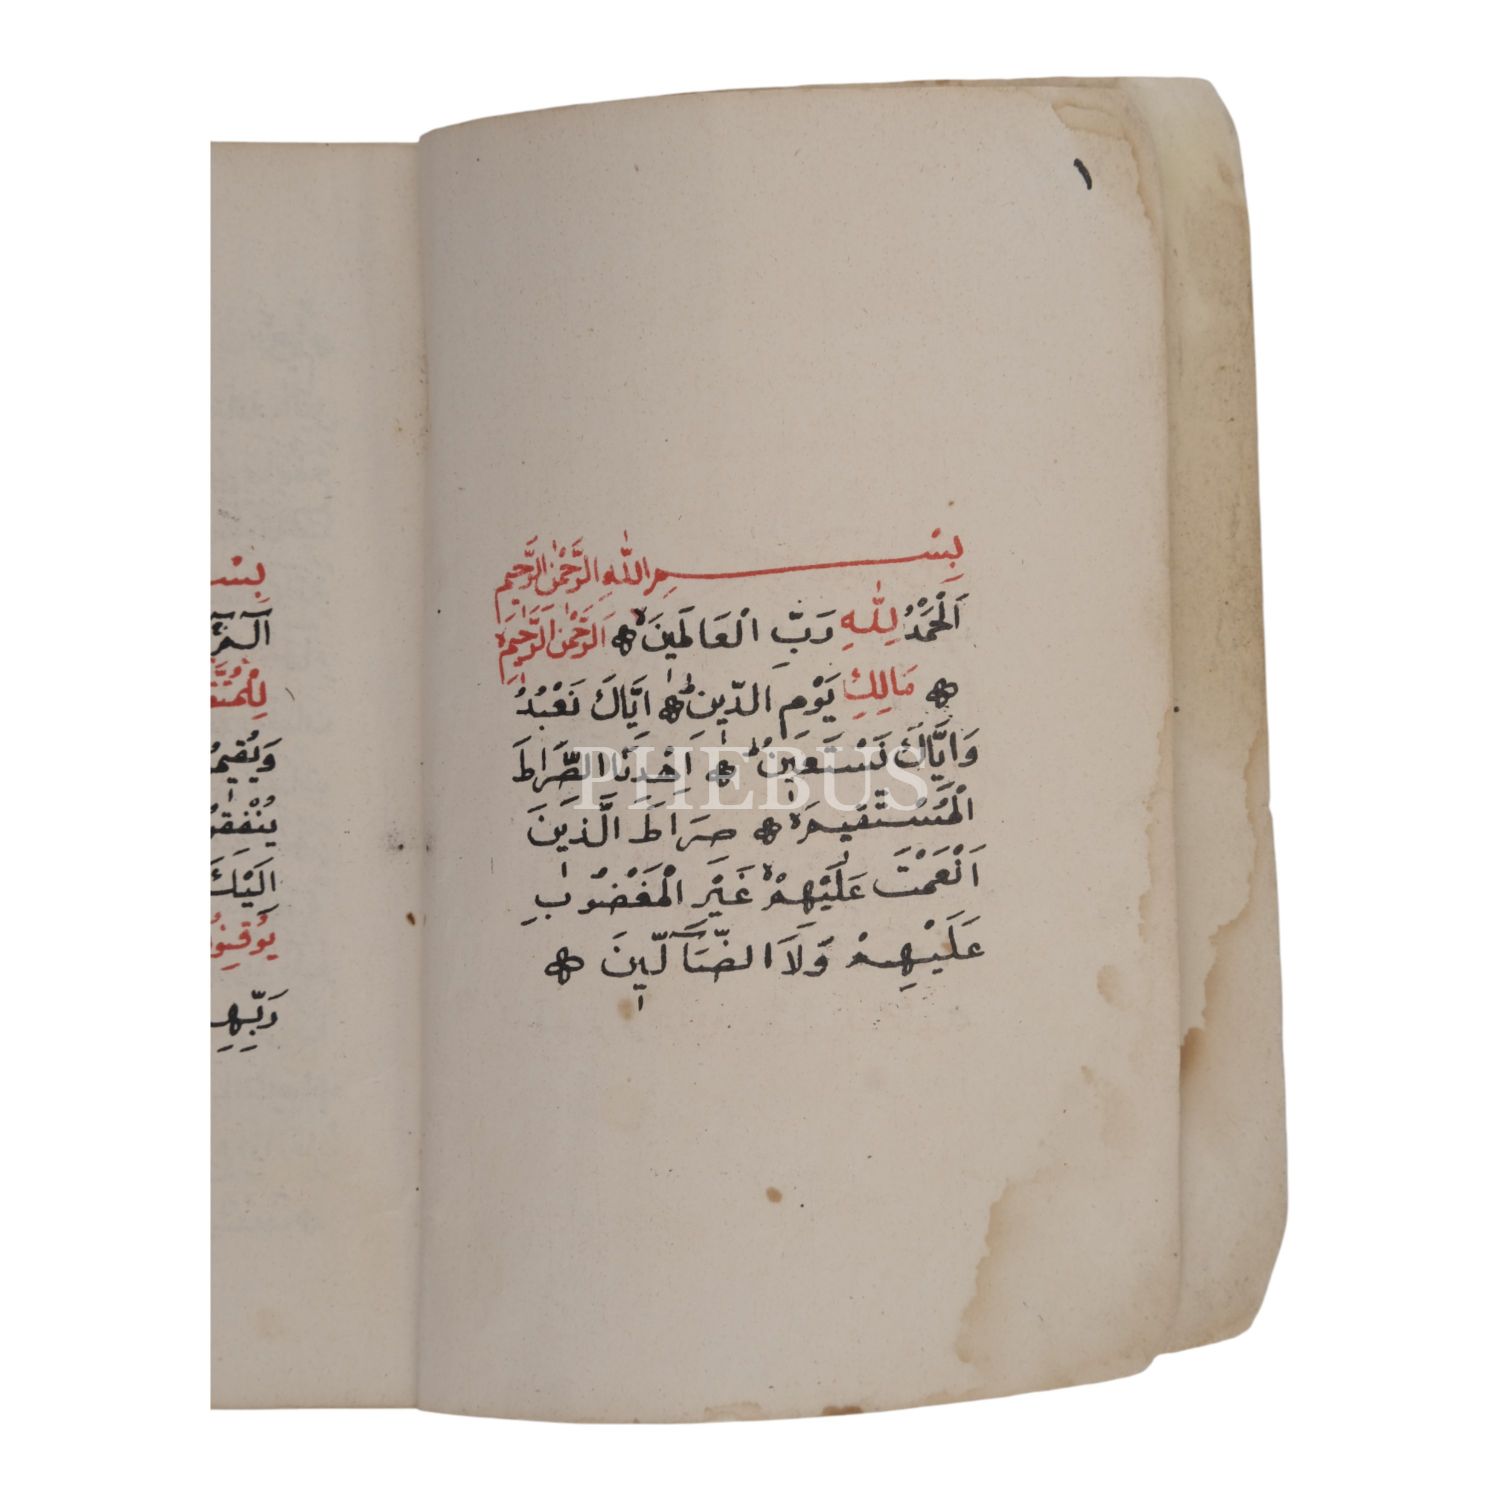 ١
بِسْمِ اللّٰهِ الرَّحْمٰنِ الرَّحِيمِ
اَلْحَمْدُ لِلّٰهِ رَبِّ الْعَالَمِينَ ۞ اَلرَّحْمٰنِ الرَّحِيمِ
۞ مَالِكِ يَوْمِ الدِّينِ ۞ اِيَّاكَ نَعْبُدُ
وَاِيَّاكَ نَسْتَعِينُ ۞ اِهْدِنَا الصِّرَاطَ
الْمُسْتَقِيمَ ۞ صِرَاطَ الَّذِينَ
اَنْعَمْتَ عَلَيْهِمْ غَيْرِ الْمَغْضُوبِ
عَلَيْهِمْ وَلَا الضَّآلِّينَ ۞
PHEBUS
بِسْـ
الٓمٓ
لِلْمُتَّقِـ
وَيُقِيمُـ
يُنْفِقُـ
اِلَيْكَ
يُوقِنُو
رَبِّهِـ